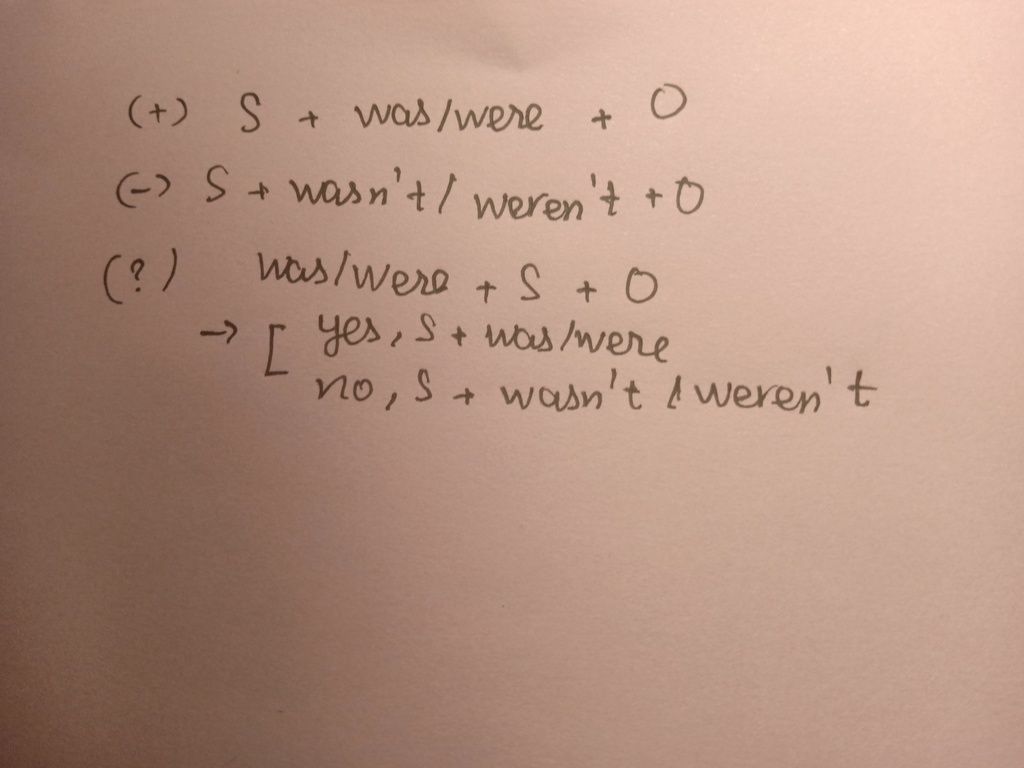 (+) S + was/were + O
(-) S + wasn't / weren't + O
(?) was/were + S + O
→ [ yes, S + was/were
no, S + wasn't / weren't